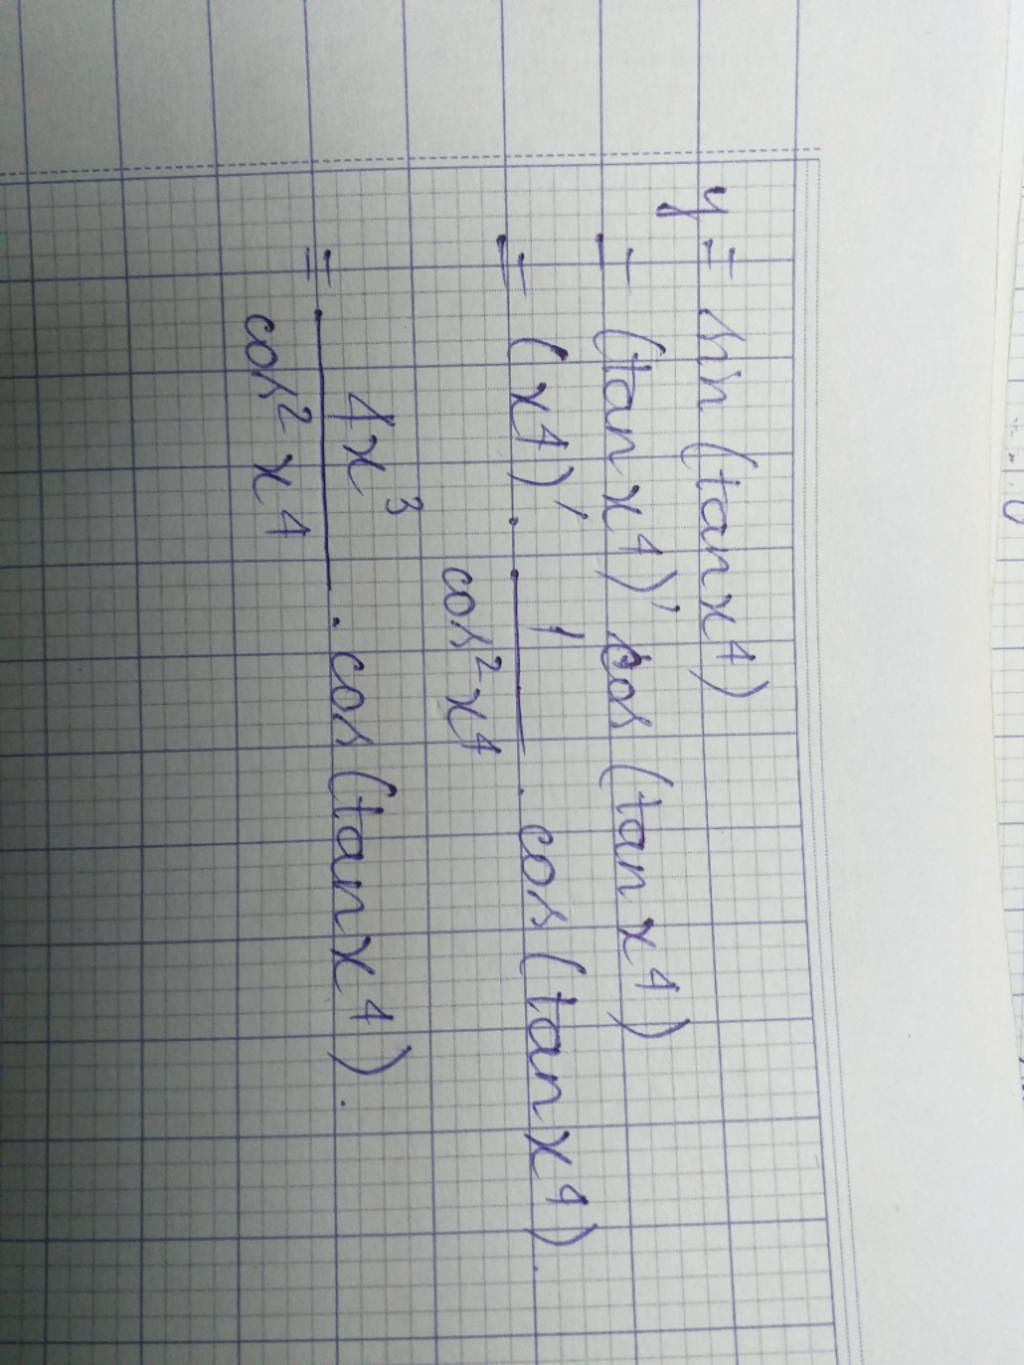 y = sin (tan x⁴)
= (tan x⁴)' cos (tan x⁴)
= (x⁴)' · 1/cos² x⁴ · cos (tan x⁴).
= 4x³/cos² x⁴ · cos (tan x⁴).